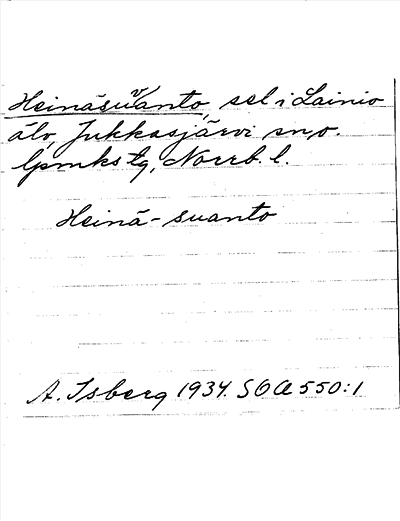 Heinäsuvanto, sel i Lainio
älv, Jukkasjärvi sn, o.
lpmkstg, Norrb. l.
Heinä-suanto
A. Isberg 1934. SOA 550:1